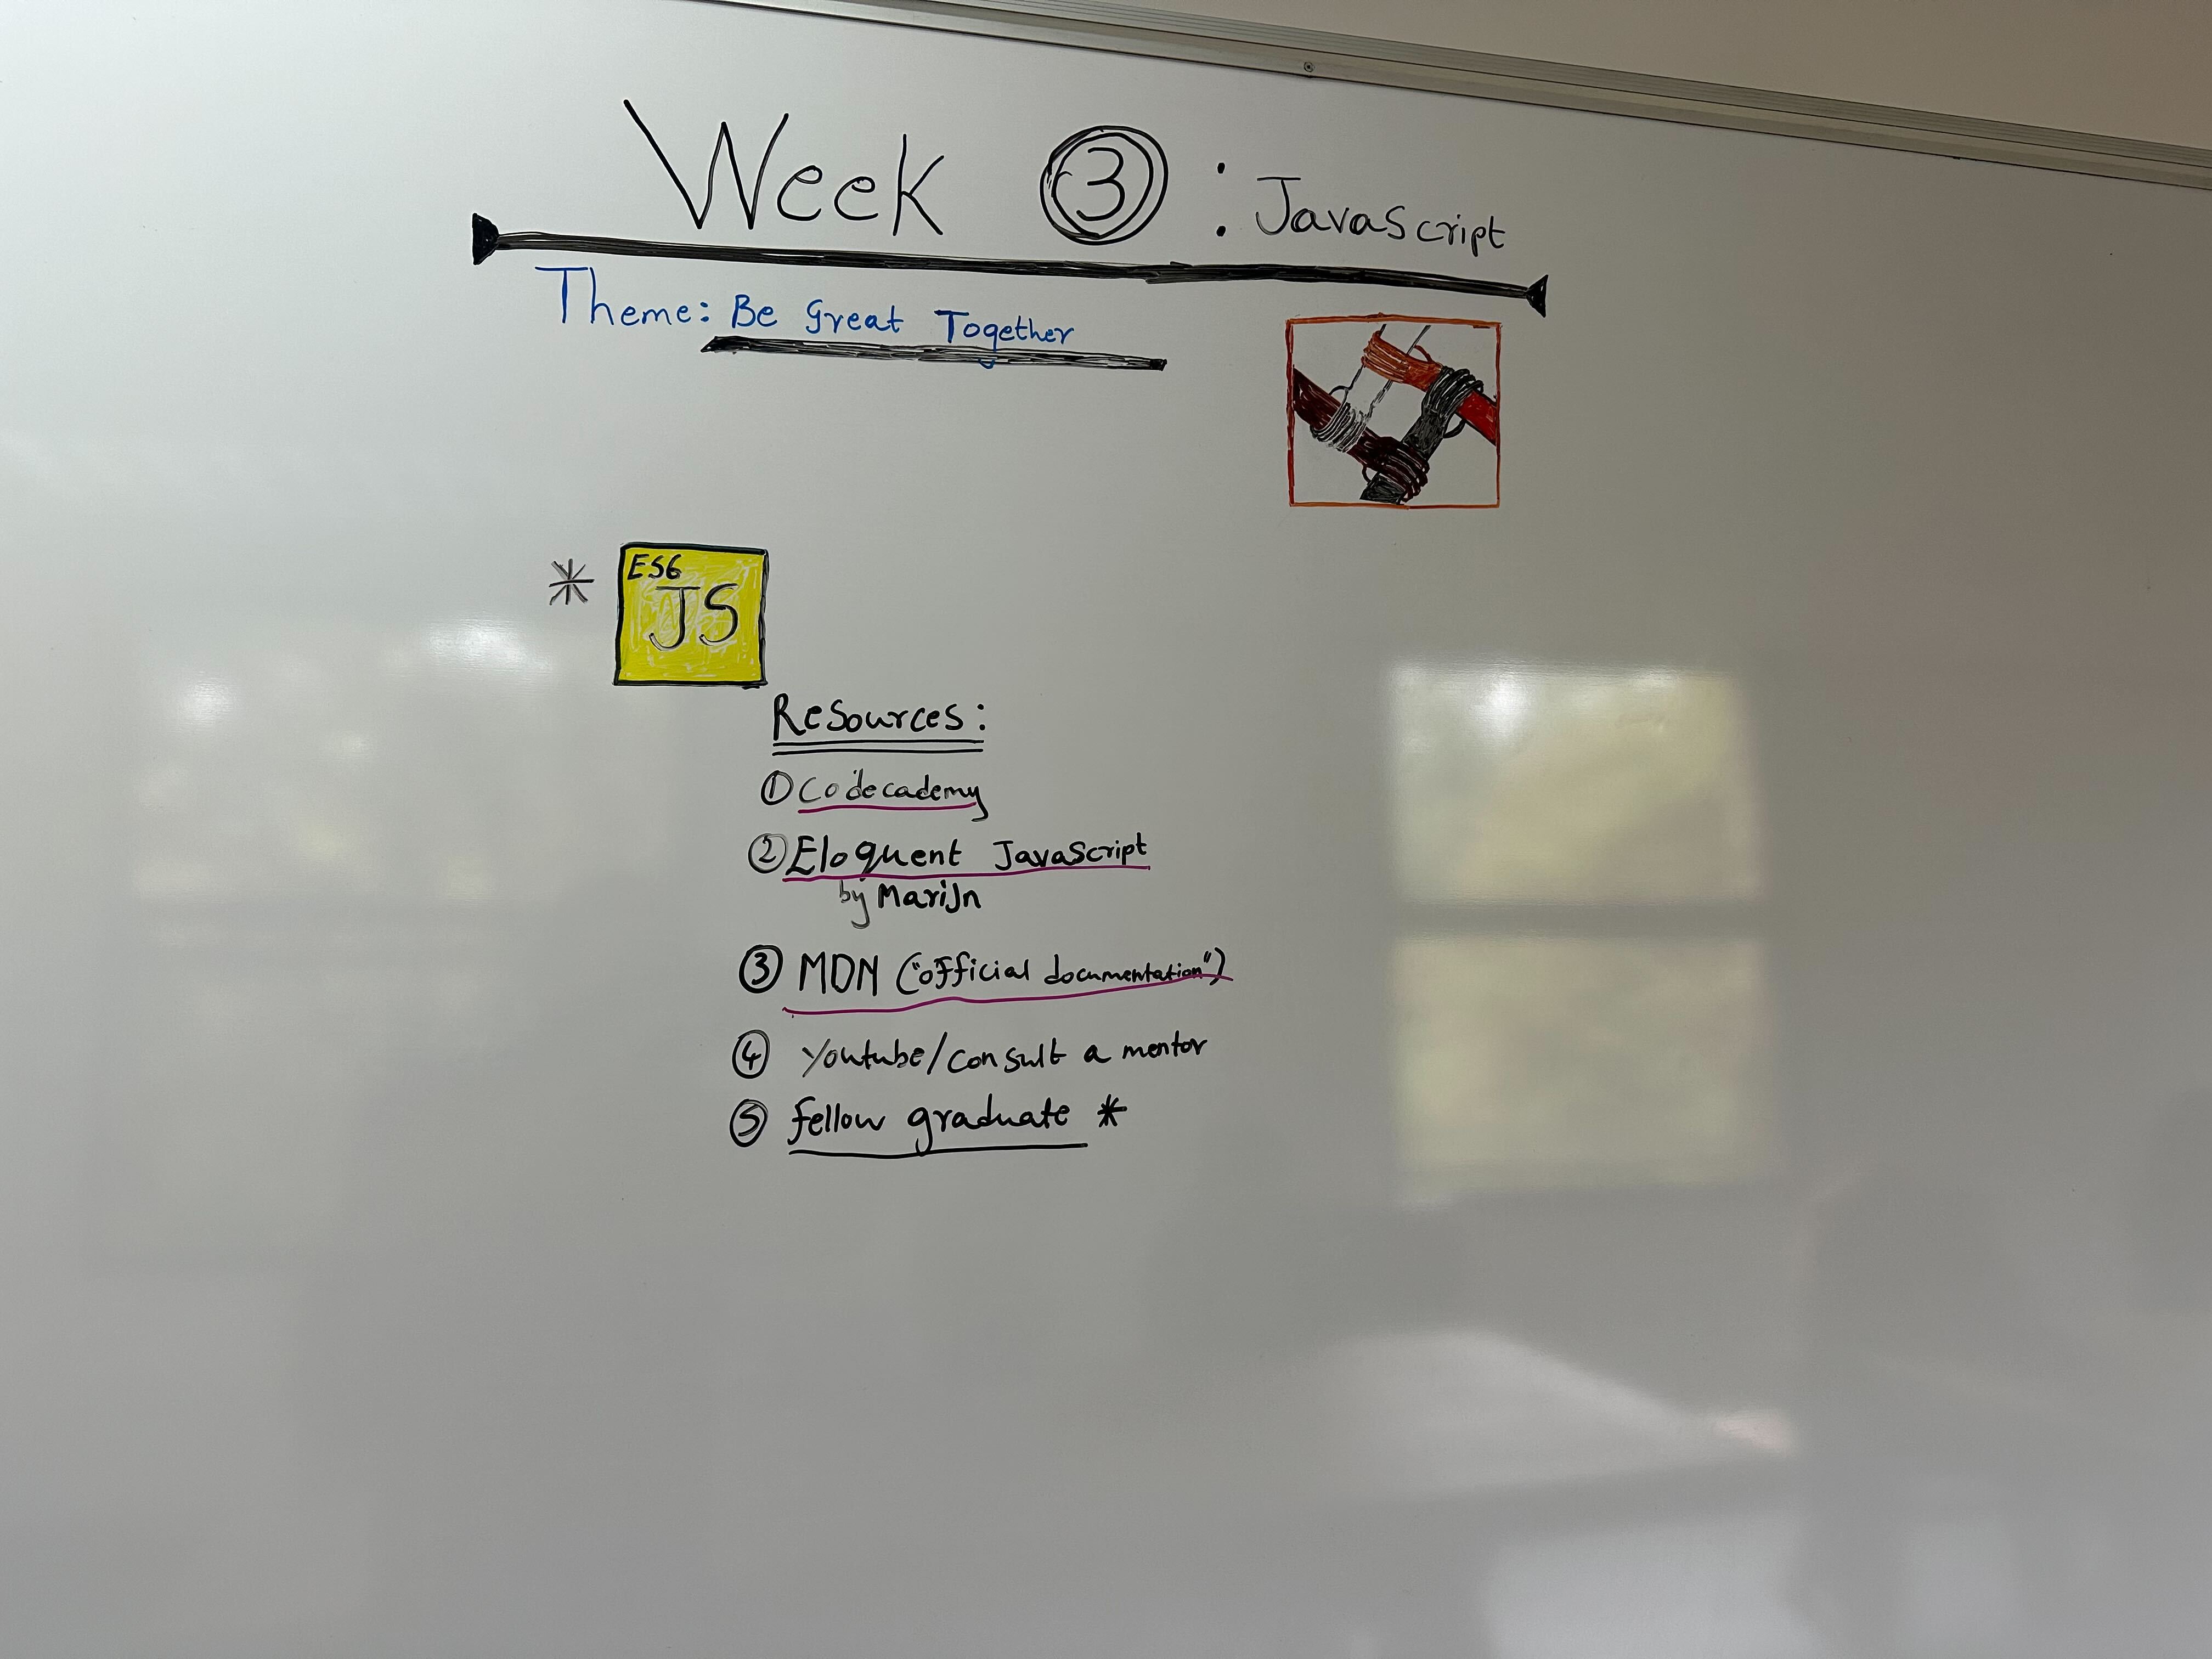 Week 3 : JavaScript
Theme: Be Great Together
* ES6
JS
Resources:
1 Codecademy
2 Eloquent JavaScript
by Marijn
3 MDN ("official documentation")
4 Youtube/consult a mentor
5 fellow graduate *